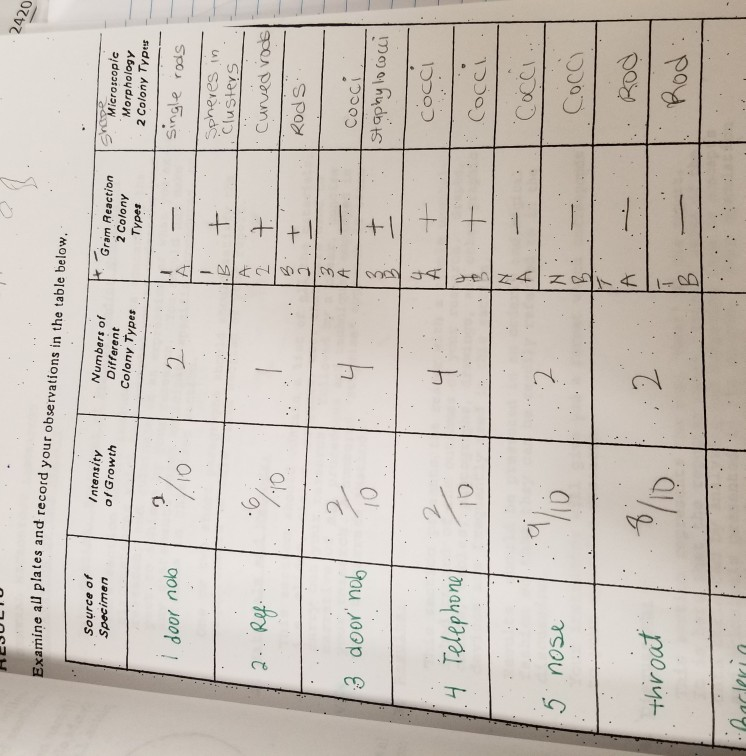 2420
RESULTS
Examine all plates and record your observations in the table below.
Source of
Specimen
Intensity
of Growth
Numbers of
Different
Colony Types
+ -
Gram Reaction
2 Colony
Types
Shape
Microscopic
Morphology
2 Colony Types
1 door nob
/10
2
1
A
–
single rods
1
B
+
Spheres in
Clusters
2. Ref.
6/10
1
A
2
+
Curved rods
B
2
+
–
Rods
3 door nob
2/10
4
3
A
–
Cocci
3
B
+
–
Staphylococci
4 Telephone
2/10
4
4
A
+
Cocci
4
B
+
Cocci
5 nose
9/10
2
N
A
–
Cocci
N
B
–
Cocci
throat
8/10
2
T
A
–
Rod
T
B
–
Rod
Bacteria